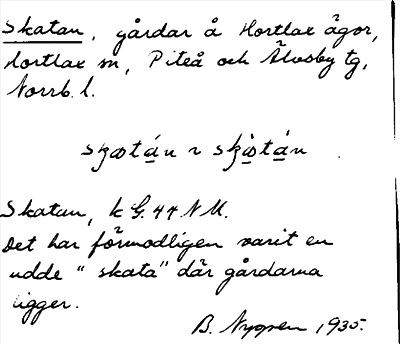 Skatan, gårdar å Hortlax ägor,
Hortlax sn, Piteå och Älvsby tg,
Norrb. l.
Skatan, k G. 44 N M.
Det har förmodligen varit en
udde "skata" där gårdarna
ligger.
B. 1935.